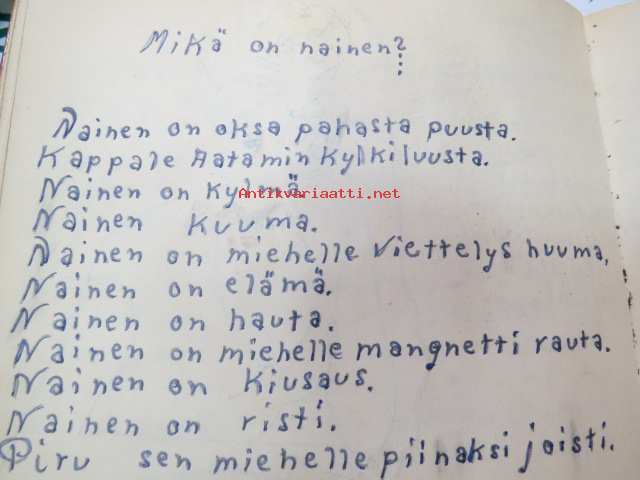 Mikä on nainen?
Nainen on oksa pahasta puusta.
Kappale Aatamin Kylkiluusta.
Nainen on Kylmä
Antikvariaatti.net
Nainen Kuuma.
Nainen on miehelle viettelys huuma,
Nainen on elämä.
Nainen on hauta.
Nainen on miehelle mangnetti rauta.
Nainen on Kiusaus.
Nainen on risti.
Piru sen miehelle piinaksi joisti.